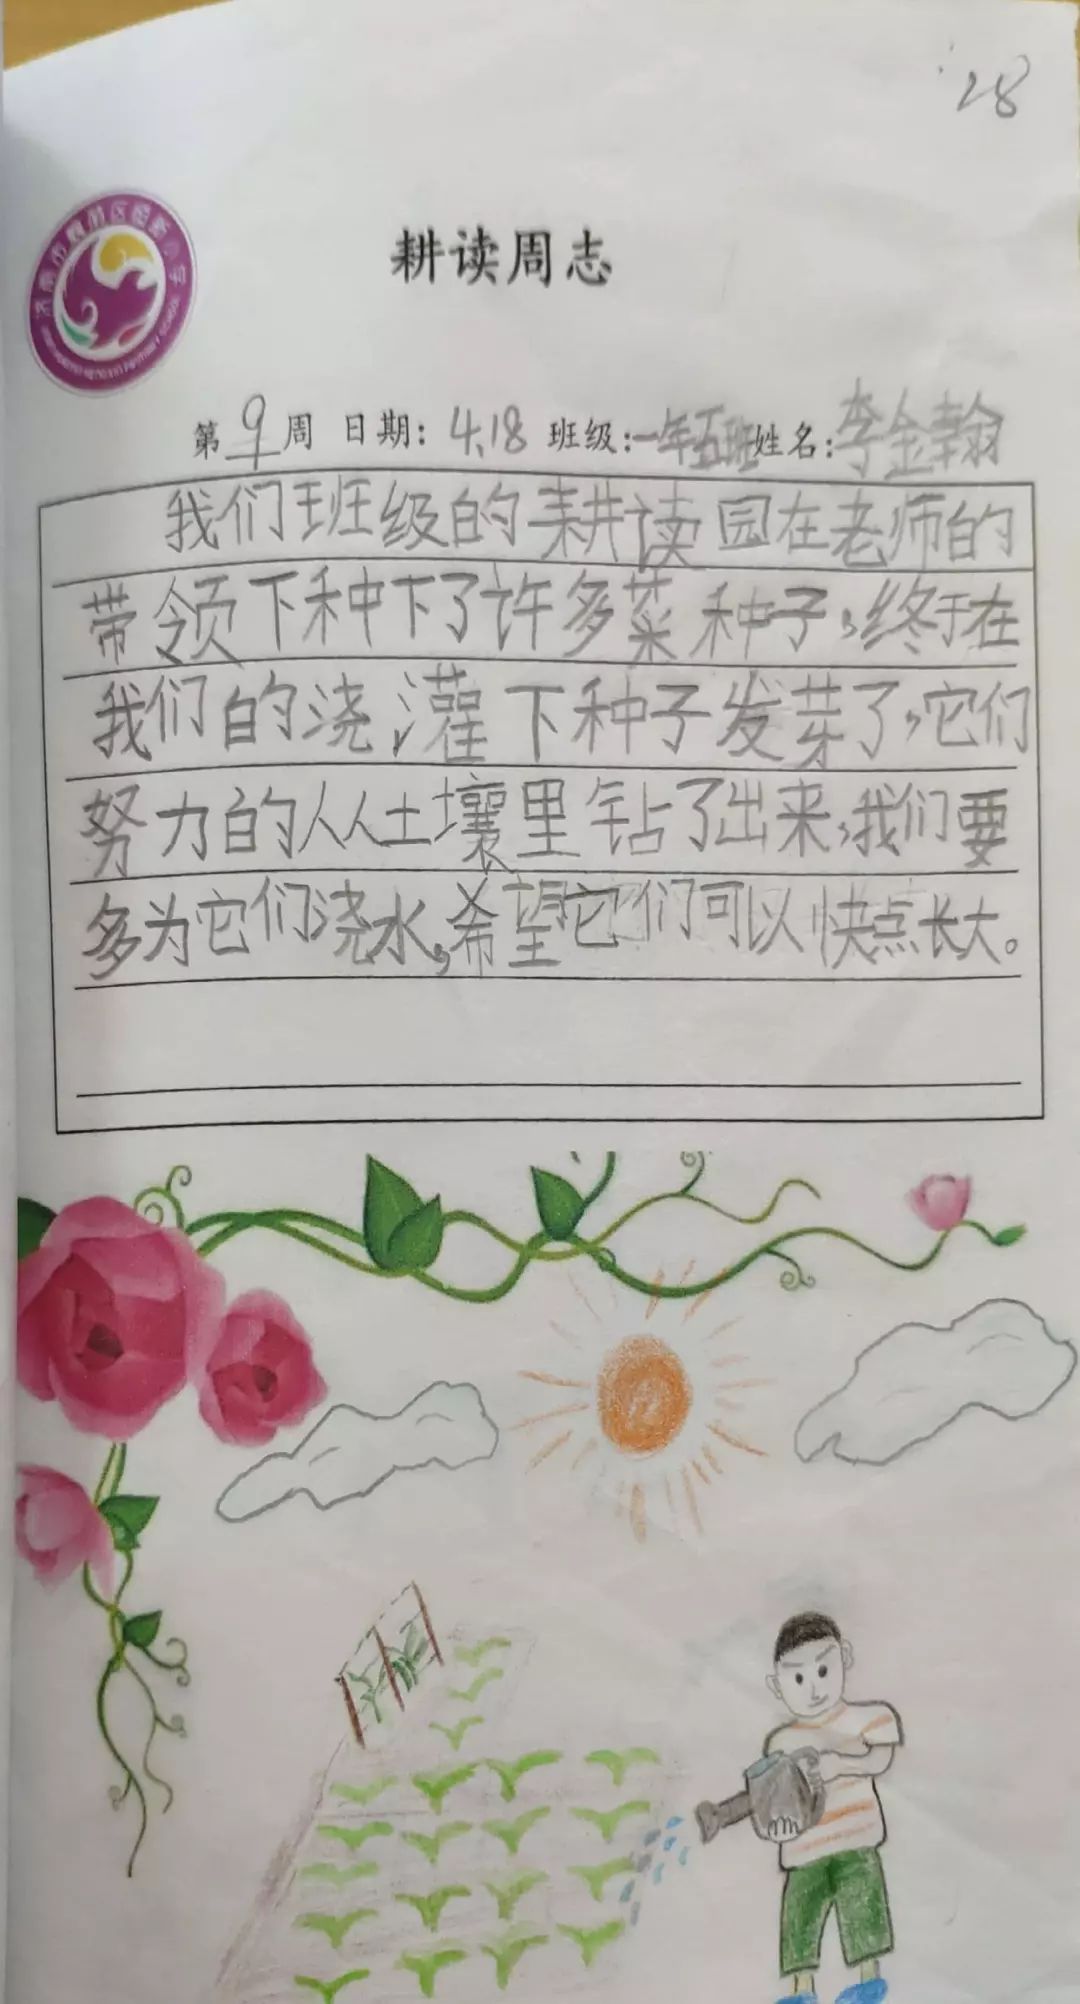 28
耕读周志
第9周 日期：4.18 班级：一年五班 姓名：李金翰
我们班级的耕读园在老师的
带领下种下了许多菜种子，终于在
我们的浇灌下种子发芽了，它们
努力的从土壤里钻了出来，我们要
多为它们浇水，希望它们可以快点长大。